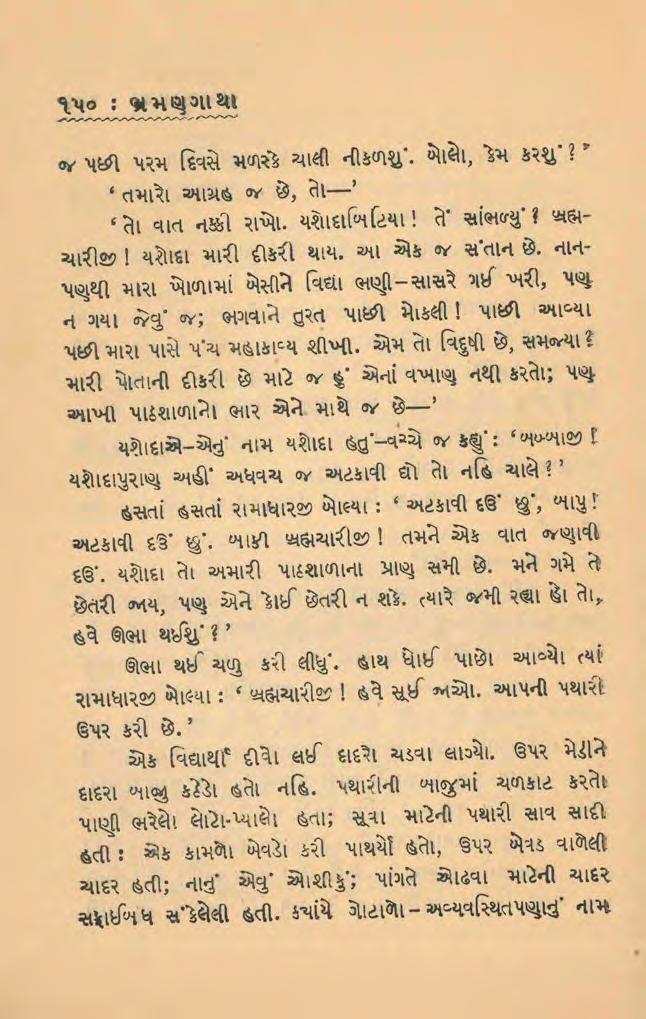 ૧૫૦ : ભ્રમણગાથા
જ પછી પરમ દિવસે મળસ્કે ચાલી નીકળશું. બોલો, કેમ કરશું ?”
‘ તમારો આગ્રહ જ છે, તો—’
‘ તો વાત નક્કી રાખો. યશોદાબિટિયા ! તેં સાંભળ્યું ? બ્રહ્મ-
ચારીજી ! યશોદા મારી દીકરી થાય. આ એક જ સંતાન છે. નાન-
પણથી મારા ખોળામાં બેસીને વિદ્યા ભણી–સાસરે ગઈ ખરી, પણ
ન ગયા જેવું જ; ભગવાને તુરત પાછી મોકલી ! પાછી આવ્યા
પછી મારા પાસે પંચ મહાકાવ્ય શીખી. એમ તો વિદુષી છે, સમજ્યા ?
મારી પોતાની દીકરી છે માટે જ હું એનાં વખાણ નથી કરતો; પણ
આખી પાઠશાળાનો ભાર એને માથે જ છે—’
યશોદાએ–એનું નામ યશોદા હતું–વચ્ચે જ કહ્યું : ‘બબ્બાજી !
યશોદાપુરાણ અહીં અધવચ જ અટકાવી દ્યો તો નહિ ચાલે ?’
હસતાં હસતાં રામાધારજી બોલ્યા : ‘ અટકાવી દઉં છું, બાપુ !
અટકાવી દઉં છું. બાકી બ્રહ્મચારીજી ! તમને એક વાત જણાવી
દઉં. યશોદા તો અમારી પાઠશાળાના પ્રાણ સમી છે. મને ગમે તે
છેતરી જાય, પણ એને કોઈ છેતરી ન શકે. ત્યારે જમી રહ્યા હો તો,
હવે ઊભા થઈશું ?’
ઊભા થઈ ચળુ કરી લીધું. હાથ ધોઈ પાછો આવ્યો ત્યાં
રામાધારજી બોલ્યા : ‘ બ્રહ્મચારીજી ! હવે સૂઈ જાઓ. આપની પથારી
ઉપર કરી છે.’
એક વિદ્યાર્થી દીવો લઈ દાદરો ચડવા લાગ્યો. ઉપર મેડીને
દાદરા બાજુ કઠેડો હતો નહિ. પથારીની બાજુમાં ચળકાટ કરતો
પાણી ભરેલો લોટો-પ્યાલો હતા; સૂવા માટેની પથારી સાવ સાદી
હતી : એક કામળો બેવડો કરી પાથર્યો હતો, ઉપર બેવડ વાળેલી
ચાદર હતી; નાનું એવું ઓશીકું; પાંગતે ઓઢવા માટેની ચાદર
સફાઈબંધ સંકેલેલી હતી. કયાંયે ગોટાળો – અવ્યવસ્થિતપણાનું નામ